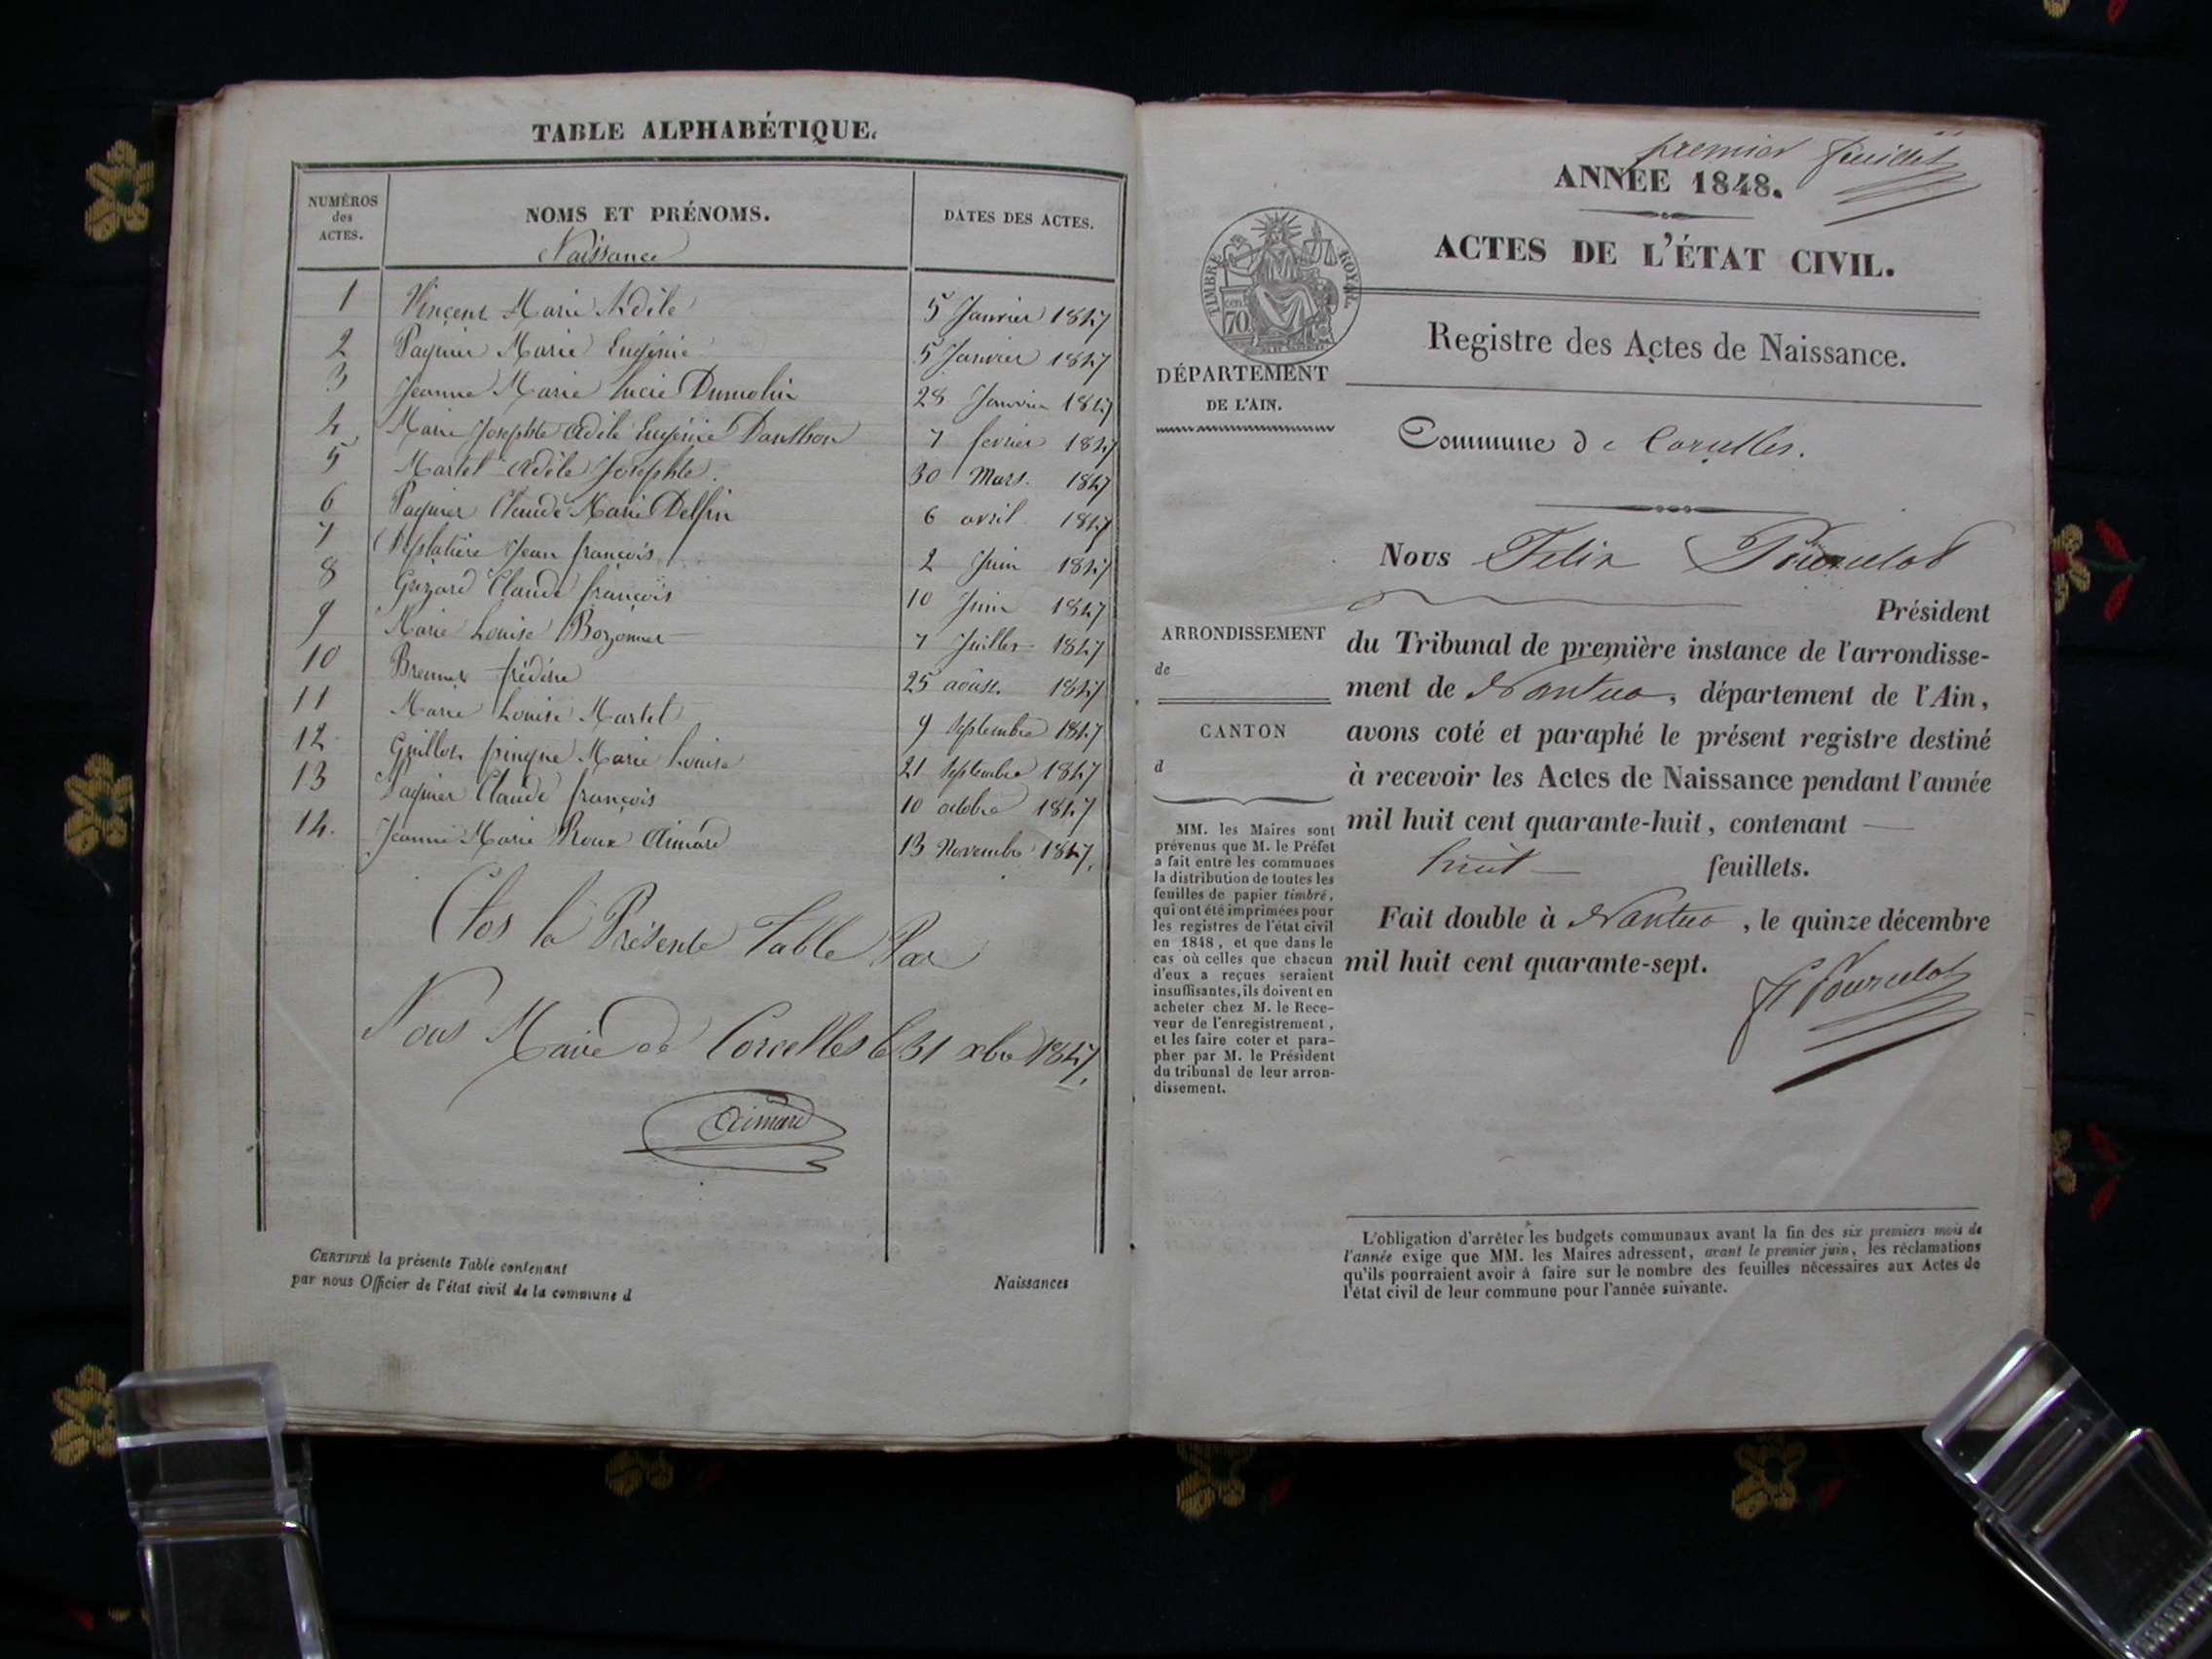 TABLE ALPHABÉTIQUE.
NUMÉROS des ACTES.
NOMS ET PRÉNOMS.
Naissance
DATES DES ACTES.
1 Vincent Marie Adèle 5 Janvier 1847
2 Paquier Marie Eugénie 5 Janvier 1847
3 Jeanne Marie Lucie Dumolin 28 Janvier 1847
4 Marie Josephte Adèle Eugénie Danthon 7 fevrier 1847
5 Martel Adèle Josephte 30 Mars. 1847
6 Paquier Claude Marie Delfin 6 avril 1847
7 Jean françois 2 Juin 1847
8 Grizard Claude françois 10 Juin 1847
9 Marie Louise Bozonnet 7 Juillet 1847
10 frédéric 25 août. 1847
11 Marie Louise Martel 9 Septembre 1847
12 Guillot pingue Marie Louise 21 Septembre 1847
13 Paquier Claude françois 10 octobre 1847
14. Jeanne Marie Roux Aimard 13 Novembre 1847.
Clos la Présente Table Par
Nous Maire de Corcelles le 31 xbre 1847.
Aimard
CERTIFIÉ la présente Table contenant Naissances
par nous Officier de l'état civil de la commune d
premier feuillet
ANNÉE 1848.
ACTES DE L'ÉTAT CIVIL.
TIMBRE ROYAL
70 cen.
Registre des Actes de Naissance.
DÉPARTEMENT
DE L'AIN.
Commune de Corcelles.
Nous Felix Pourcelot
Président
ARRONDISSEMENT
de
CANTON
d
du Tribunal de première instance de l'arrondisse-
ment de Nantua, département de l'Ain,
avons coté et paraphé le présent registre destiné
à recevoir les Actes de Naissance pendant l'année
mil huit cent quarante-huit, contenant —
huit — feuillets.
Fait double à Nantua, le quinze décembre
mil huit cent quarante-sept.
F Pourcelot
MM. les Maires sont
prévenus que M. le Préfet
a fait entre les communes
la distribution de toutes les
feuilles de papier timbré,
qui ont été imprimées pour
les registres de l'état civil
en 1848, et que dans le
cas où celles que chacun
d'eux a reçues seraient
insuffisantes, ils doivent en
acheter chez M. le Rece-
veur de l'enregistrement,
et les faire coter et para-
pher par M. le Président
du tribunal de leur arron-
dissement.
L'obligation d'arrêter les budgets communaux avant la fin des six premiers mois de
l'année exige que MM. les Maires adressent, avant le premier juin, les réclamations
qu'ils pourraient avoir à faire sur le nombre des feuilles nécessaires aux Actes de
l'état civil de leur commune pour l'année suivante.